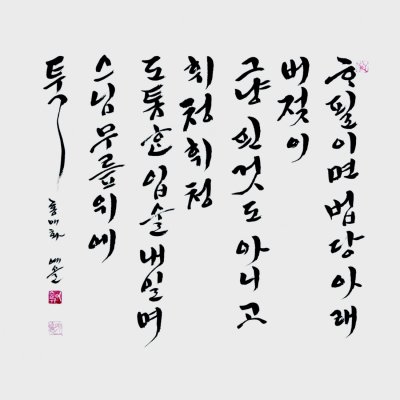 하필이면 법당 아래
버젓이
그냥 핀 것도 아니고
휘청휘청
도톰한 입술 내밀며
스님 무릎 위에
툭
홍매화